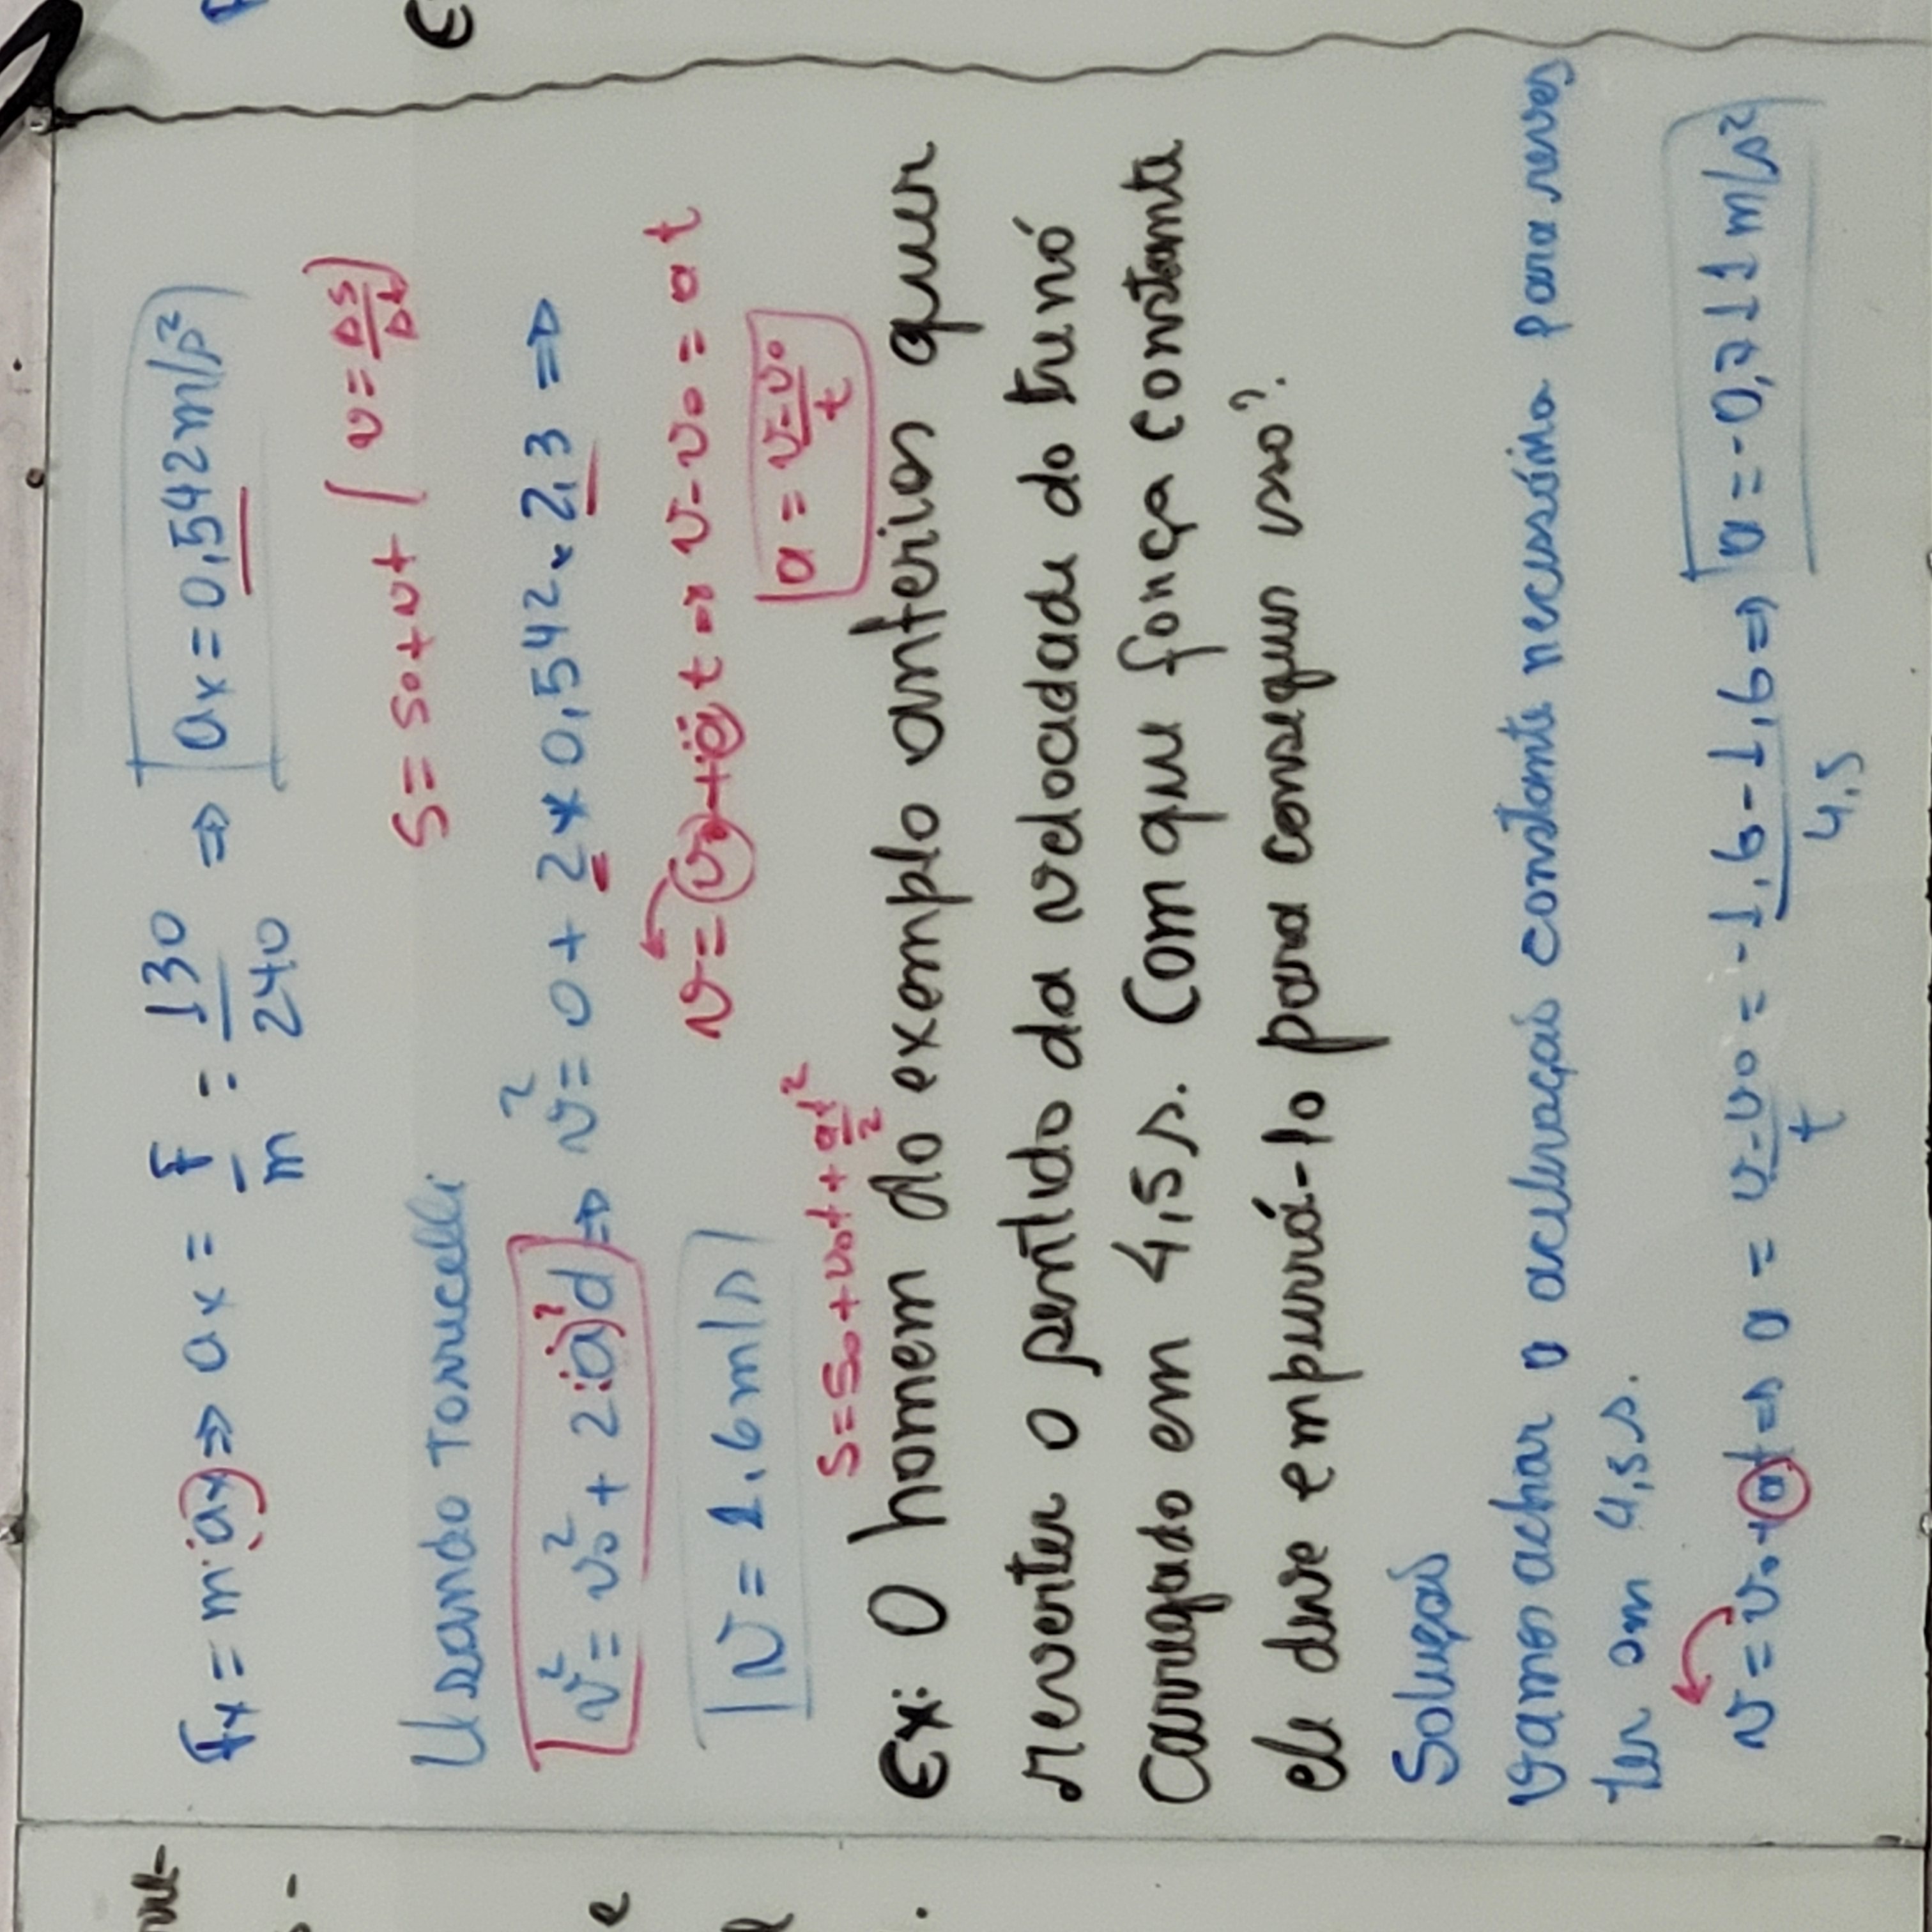 Fx = m·ax ⇒ ax = F/m = 130/240 ⇒ ax = 0,542 m/s²
S = S₀ + vt ( v = ΔS/Δt )
Usando Torricelli
v² = v₀² + 2·a·d ⇒ v² = 0 + 2 × 0,542 × 2,3 ⇒
v = v₀ + at ⇒ v - v₀ = at
v = 1,6 m/s
a = v - v₀/t
S = S₀ + v₀t + at²/2
Ex: O homem do exemplo anterior quer
reverter o sentido da velocidade do trenó
carregado em 4,5 s. Com que força constante
ele deve empurrá-lo para conseguir isso?
Solução
Vamos achar a aceleração constante necessária para rever
ter em 4,5 s.
v = v₀ + at ⇒ a = v - v₀/t = -1,6 - 1,6/4,5 ⇒ a = -0,711 m/s²
ε